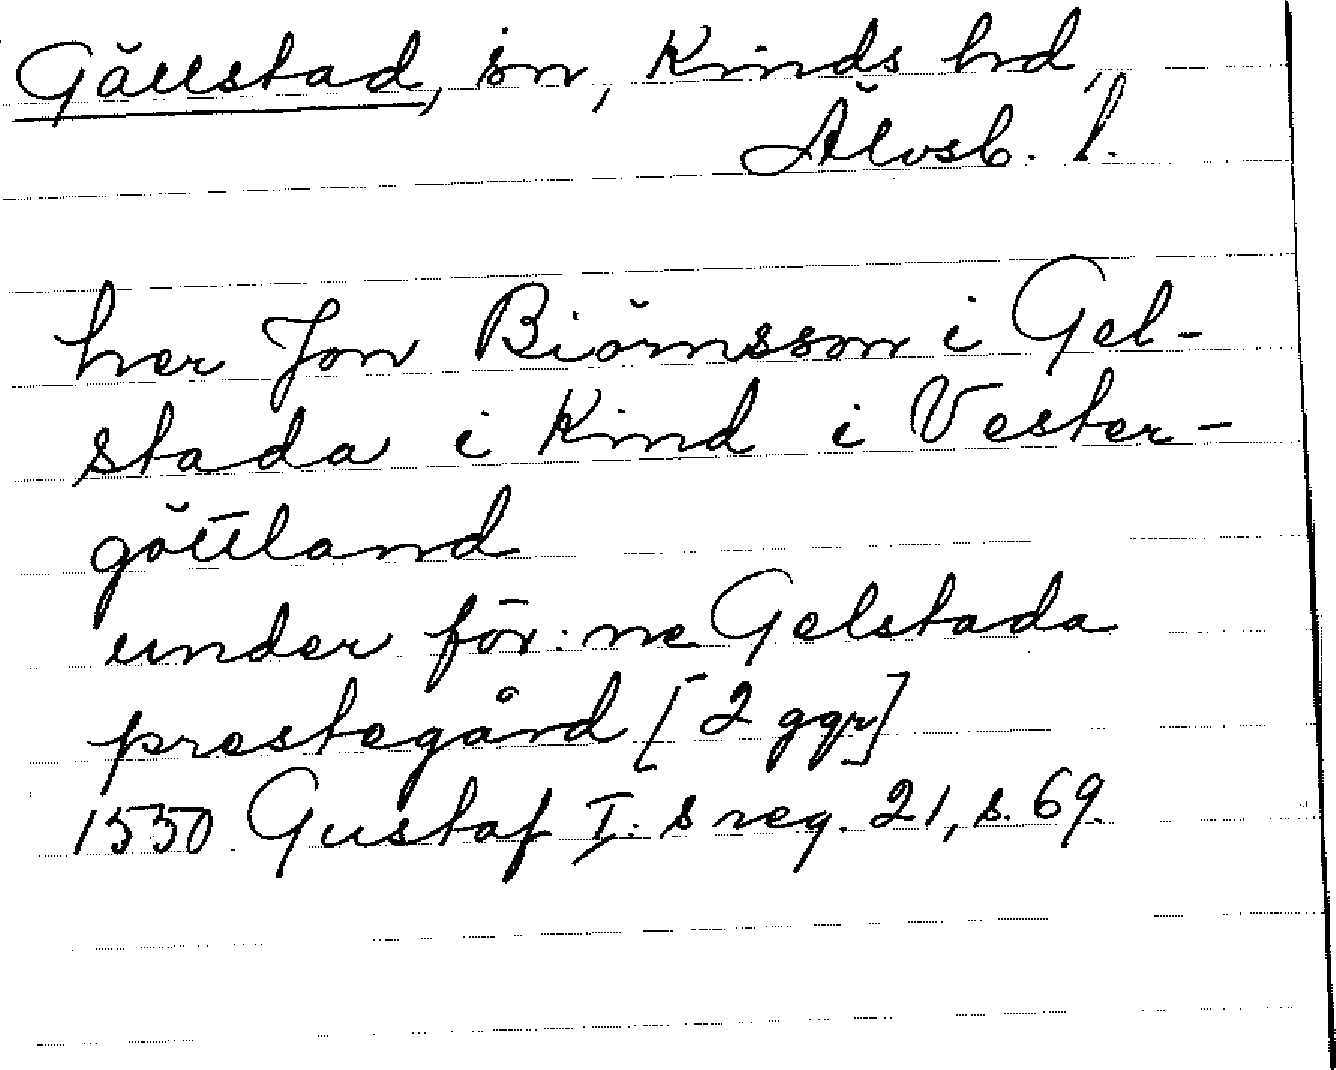 Gällstad, sn, Kinds hd,
Älvsb. l.
her Jon Biörnsson i Gel-
stada i Kind i Vester-
göttland
under för:ne Gelstada
prestegård [2 ggr]
1550 Gustaf I:s reg. 21, s. 69.